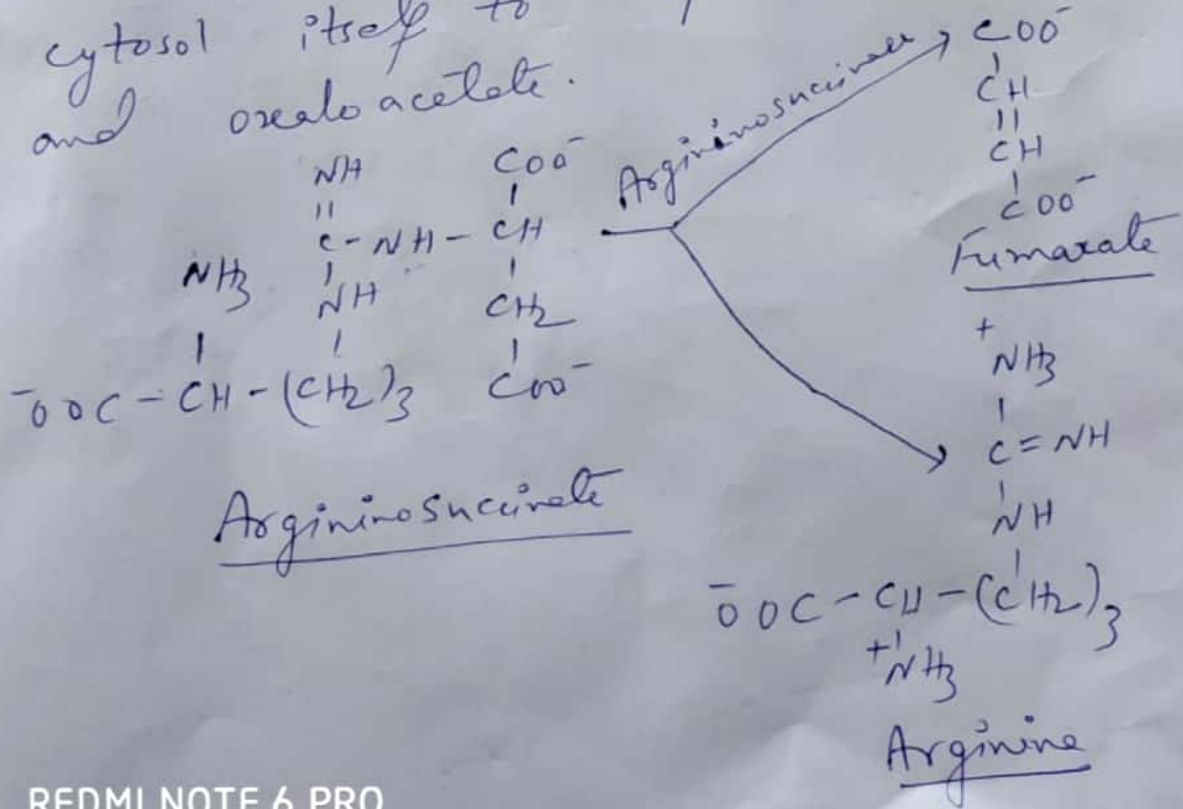 cytosol itself to
and oxaloacetate.
NH
||
C-NH-CH
NH3
NH
COO⁻
CH2
COO⁻
⁻OOC-CH-(CH2)3
Argininosuccinate
Argininosuccinase
COO⁻
CH
||
CH
COO⁻
Fumarate
+
NH3
C=NH
NH
⁻OOC-CH-(CH2)3
+NH3
Arginine
REDMI NOTE 6 PRO